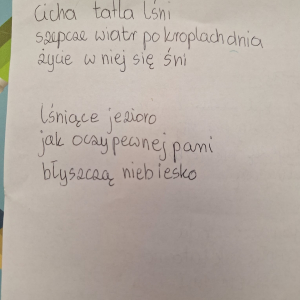 Cicha tafla lśni
szepcze wiatr po kroplach dnia
życie w niej się śni
lśniące jezioro
jak oczy pewnej pani
błyszczą niebiesko